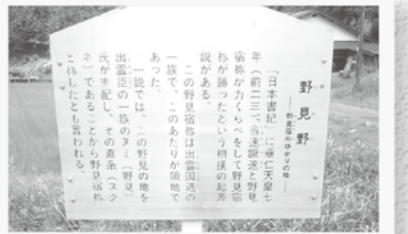 野見野
野見宿祢ゆかりの地
『日本書紀』に垂仁天皇七
年(前二三)、当速蹶速と野見
宿祢が力くらべをして野見宿
祢が勝ったという相撲の起源
説がある。
この野見宿祢は出雲国造の
一族で、このあたりが領地で
あった。
一説では、この野見の地を
出雲臣の一族のヌミ(野見)
氏が支配し、その直系(スク
ネ)であることから野見宿祢
と称したとも言われる。